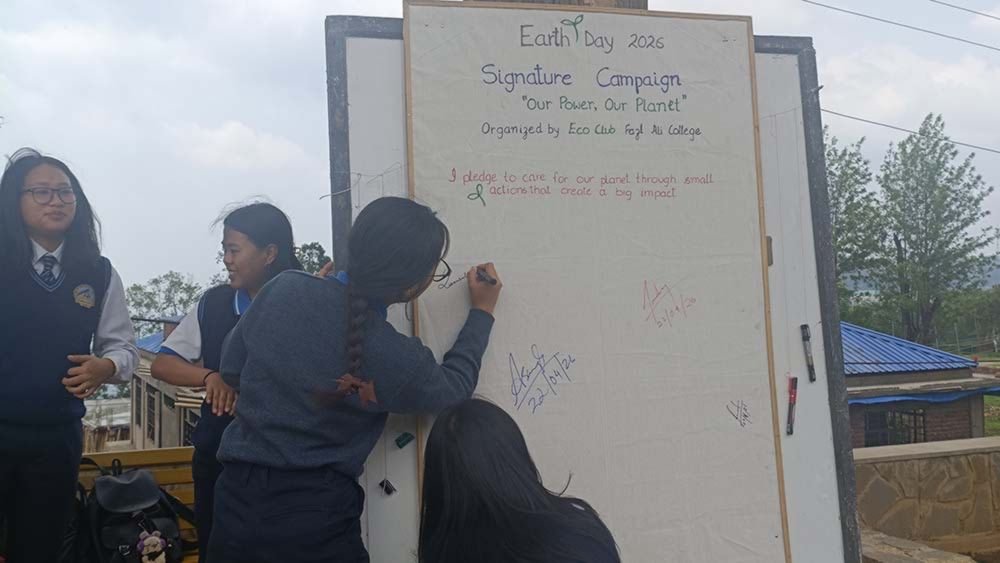 Earth Day 2026
Signature Campaign
"Our Power, Our Planet"
Organized by Eco Club Fazl Ali College
I pledge to care for our planet through small
actions that create a big impact
22/04/26
22/04/26